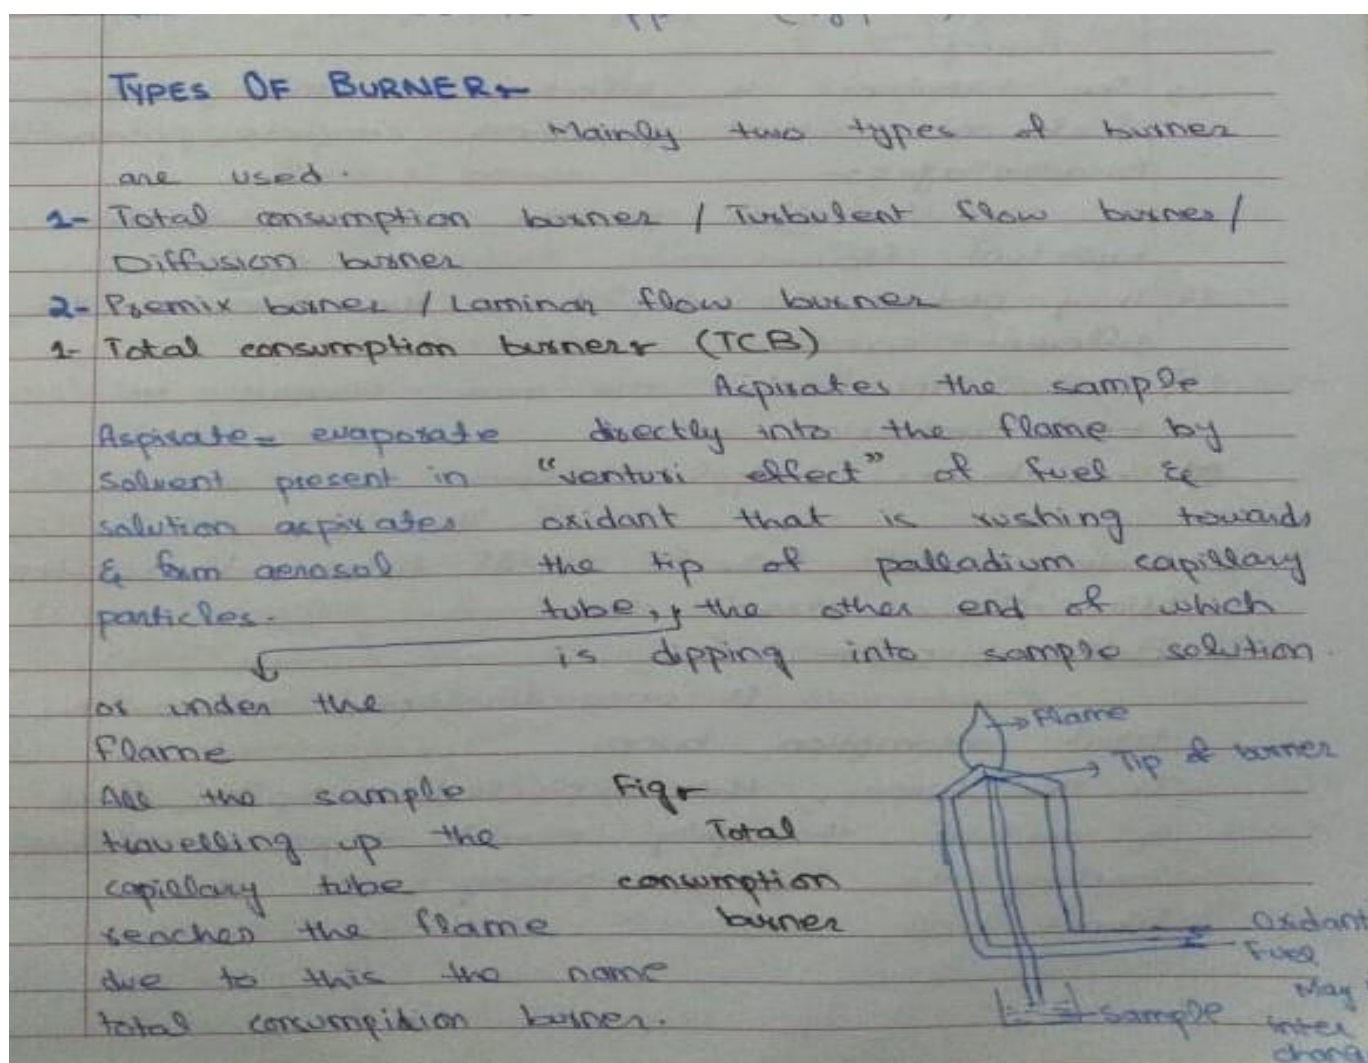 TYPES OF BURNER-
Mainly two types of burner
are used.
1- Total consumption burner / Turbulent flow burner/
Diffusion burner
2- Premix burner / Laminar flow burner
1- Total consumption burner- (TCB)
Aspirates the sample
directly into the flame by
"venturi effect" of fuel &
oxidant that is rushing towards
the tip of palladium capillary
tube, the other end of which
is dipping into sample solution.
Aspirate- evaporate
solvent present in
solution aspirates
& form aerosol
particles.
or under the
flame
All the sample
travelling up the
capillary tube
reaches the flame
due to this the name
total consumpition burner.
Fig-
Total
consumption
burner
Flame
Tip of burner
Oxidant
Fuel
Sample
May
inter